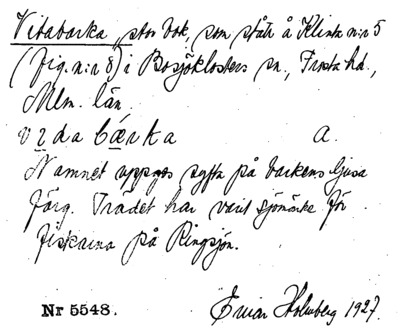 Vitabarka, stor bok, som står å Klinta n:r 5
(fig. n:r 8) i Bosjöklosters sn., Frosta hd.,
Mlm. län.
vidabärka a.
Namnet uppges syfta på barkens ljusa
färg. Trädet har varit sjömärke för
fiskarna på Ringsjön.
Nr 5548. Einar Holmberg 1927.